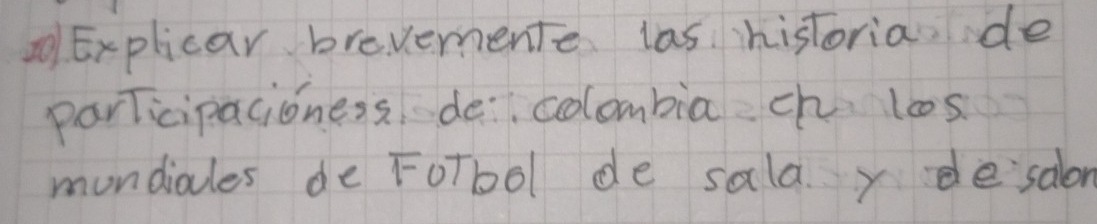 10) Explicar brevemente las historia de
participacióness de colombia en los
mundiales de FUTbol de sala y de salon